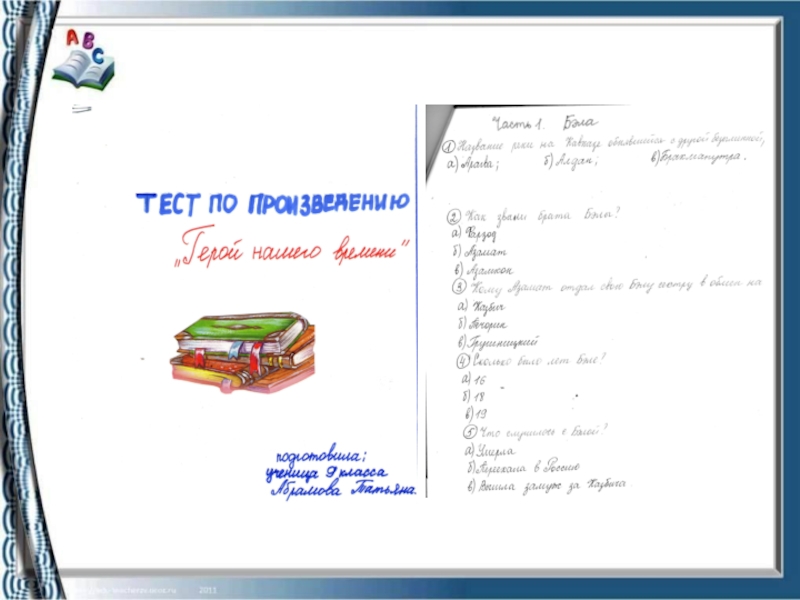 ABC
ТЕСТ ПО ПРОИЗВЕДЕНИЮ
„Герой нашего времени"
подготовила:
ученица 9 класса
Абрамова Татьяна.
Часть 1. Бэла
① Название реки на Кавказе обнявшейся с другой безыменной,
а) Арагва; б) Алдан; в) Брахмапутра.
② Как звали брата Бэлы?
а) Фарход
б) Азамат
в)
③ Кому Азамат отдал свою Бэлу сестру в обмен на
а) Казбич
б) Печорин
в) Грушницкий
④ Сколько было лет Бэле?
а) 16
б) 18
в) 19
⑤ Что случилось с Бэлой?
а) Умерла
б) Переехала в Россию
в) Вышла замуж за Казбича
2011